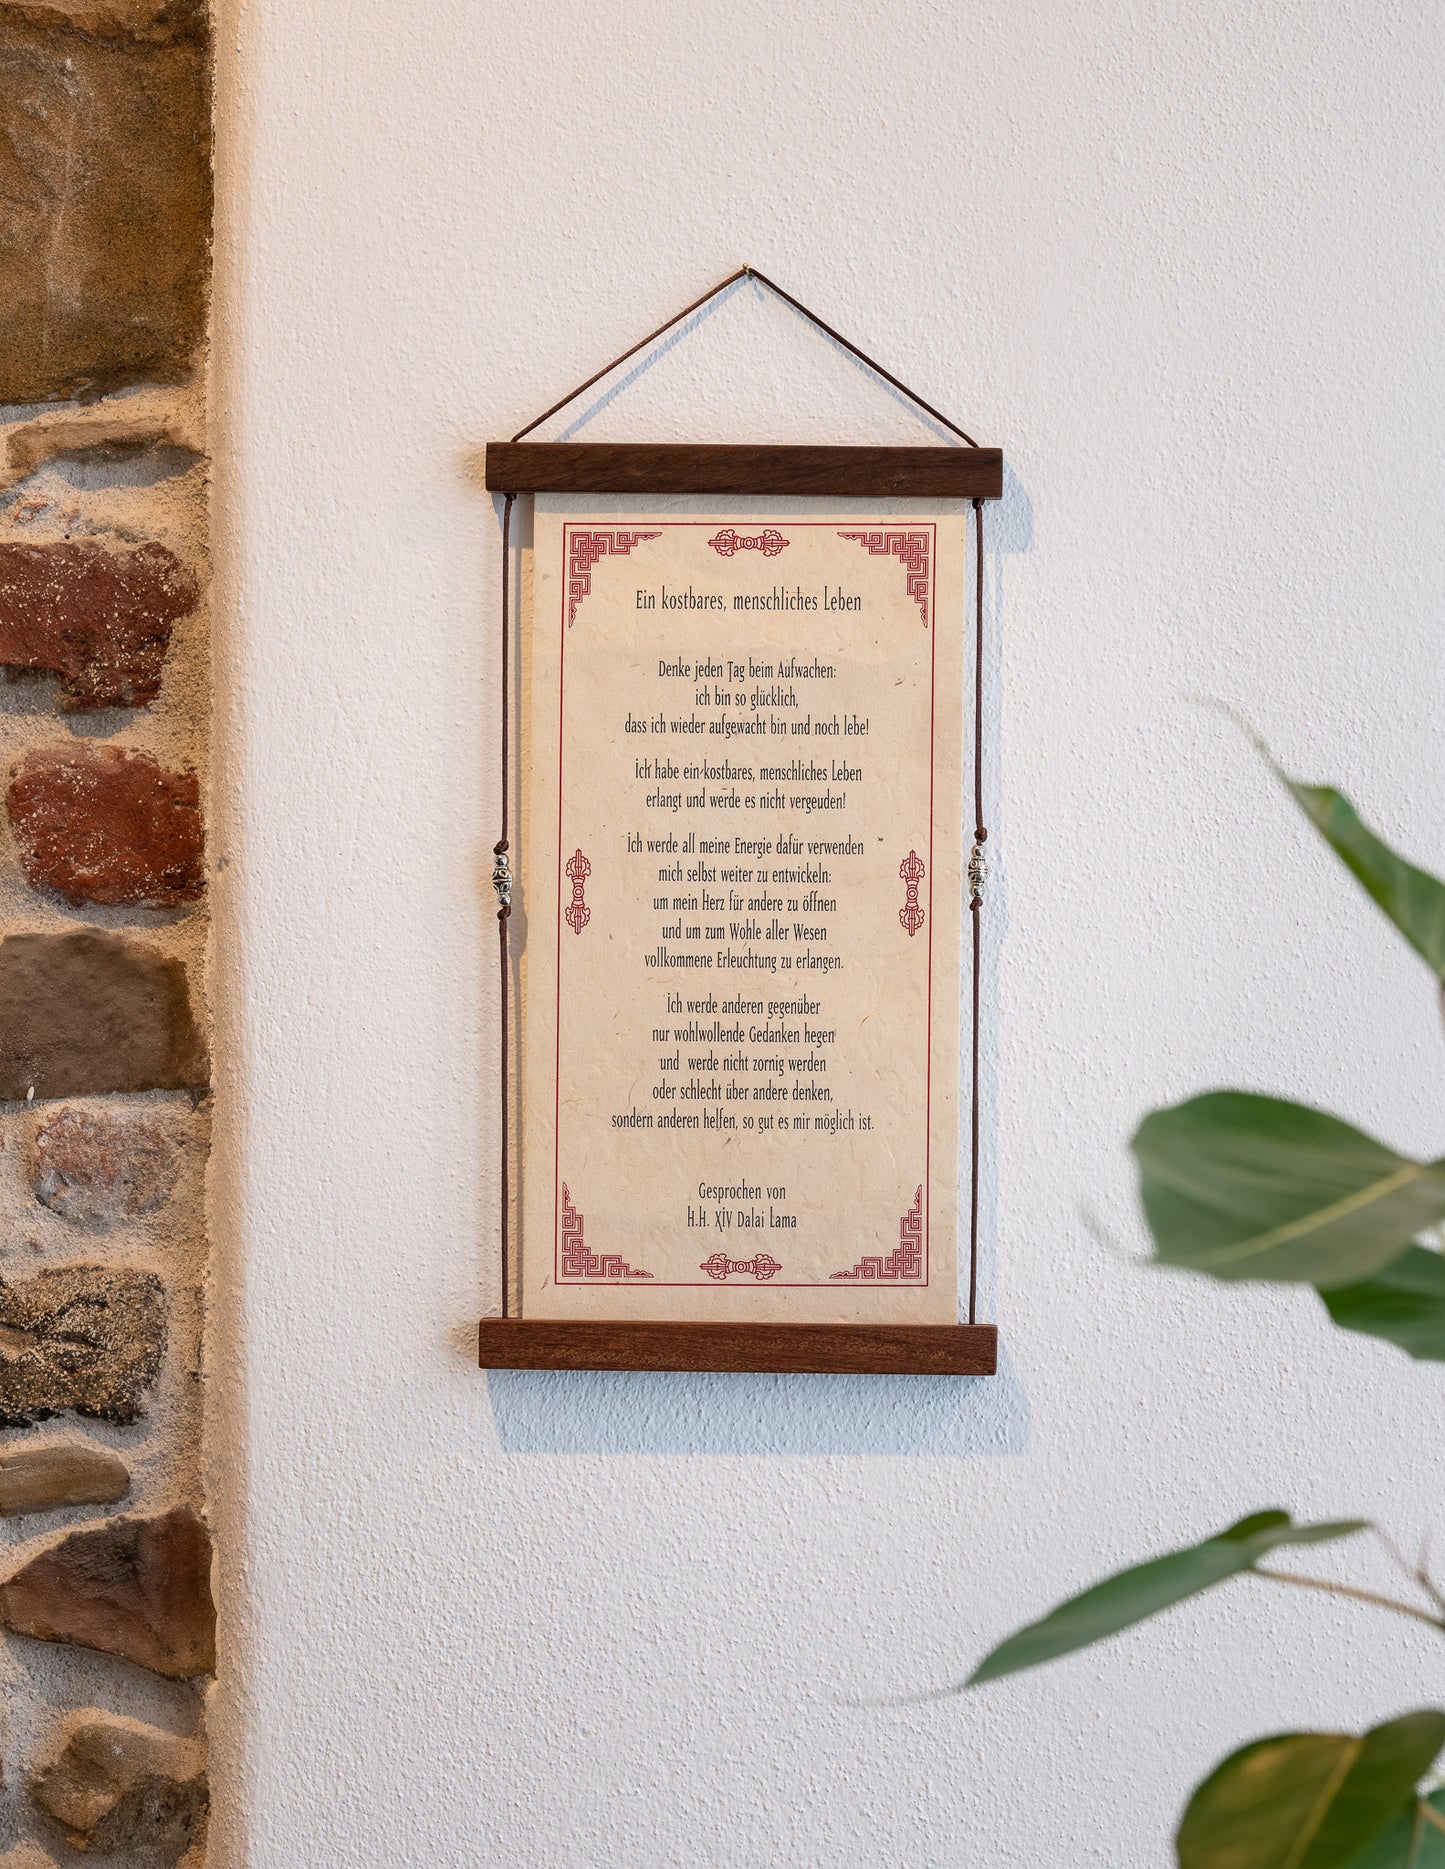 Ein kostbares, menschliches Leben
Denke jeden Tag beim Aufwachen:
ich bin so glücklich,
dass ich wieder aufgewacht bin und noch lebe!
Ich habe ein kostbares, menschliches Leben
erlangt und werde es nicht vergeuden!
Ich werde all meine Energie dafür verwenden
mich selbst weiter zu entwickeln:
um mein Herz für andere zu öffnen
und um zum Wohle aller Wesen
vollkommene Erleuchtung zu erlangen.
Ich werde anderen gegenüber
nur wohlwollende Gedanken hegen
und werde nicht zornig werden
oder schlecht über andere denken,
sondern anderen helfen, so gut es mir möglich ist.
Gesprochen von
H.H. XIV Dalai Lama